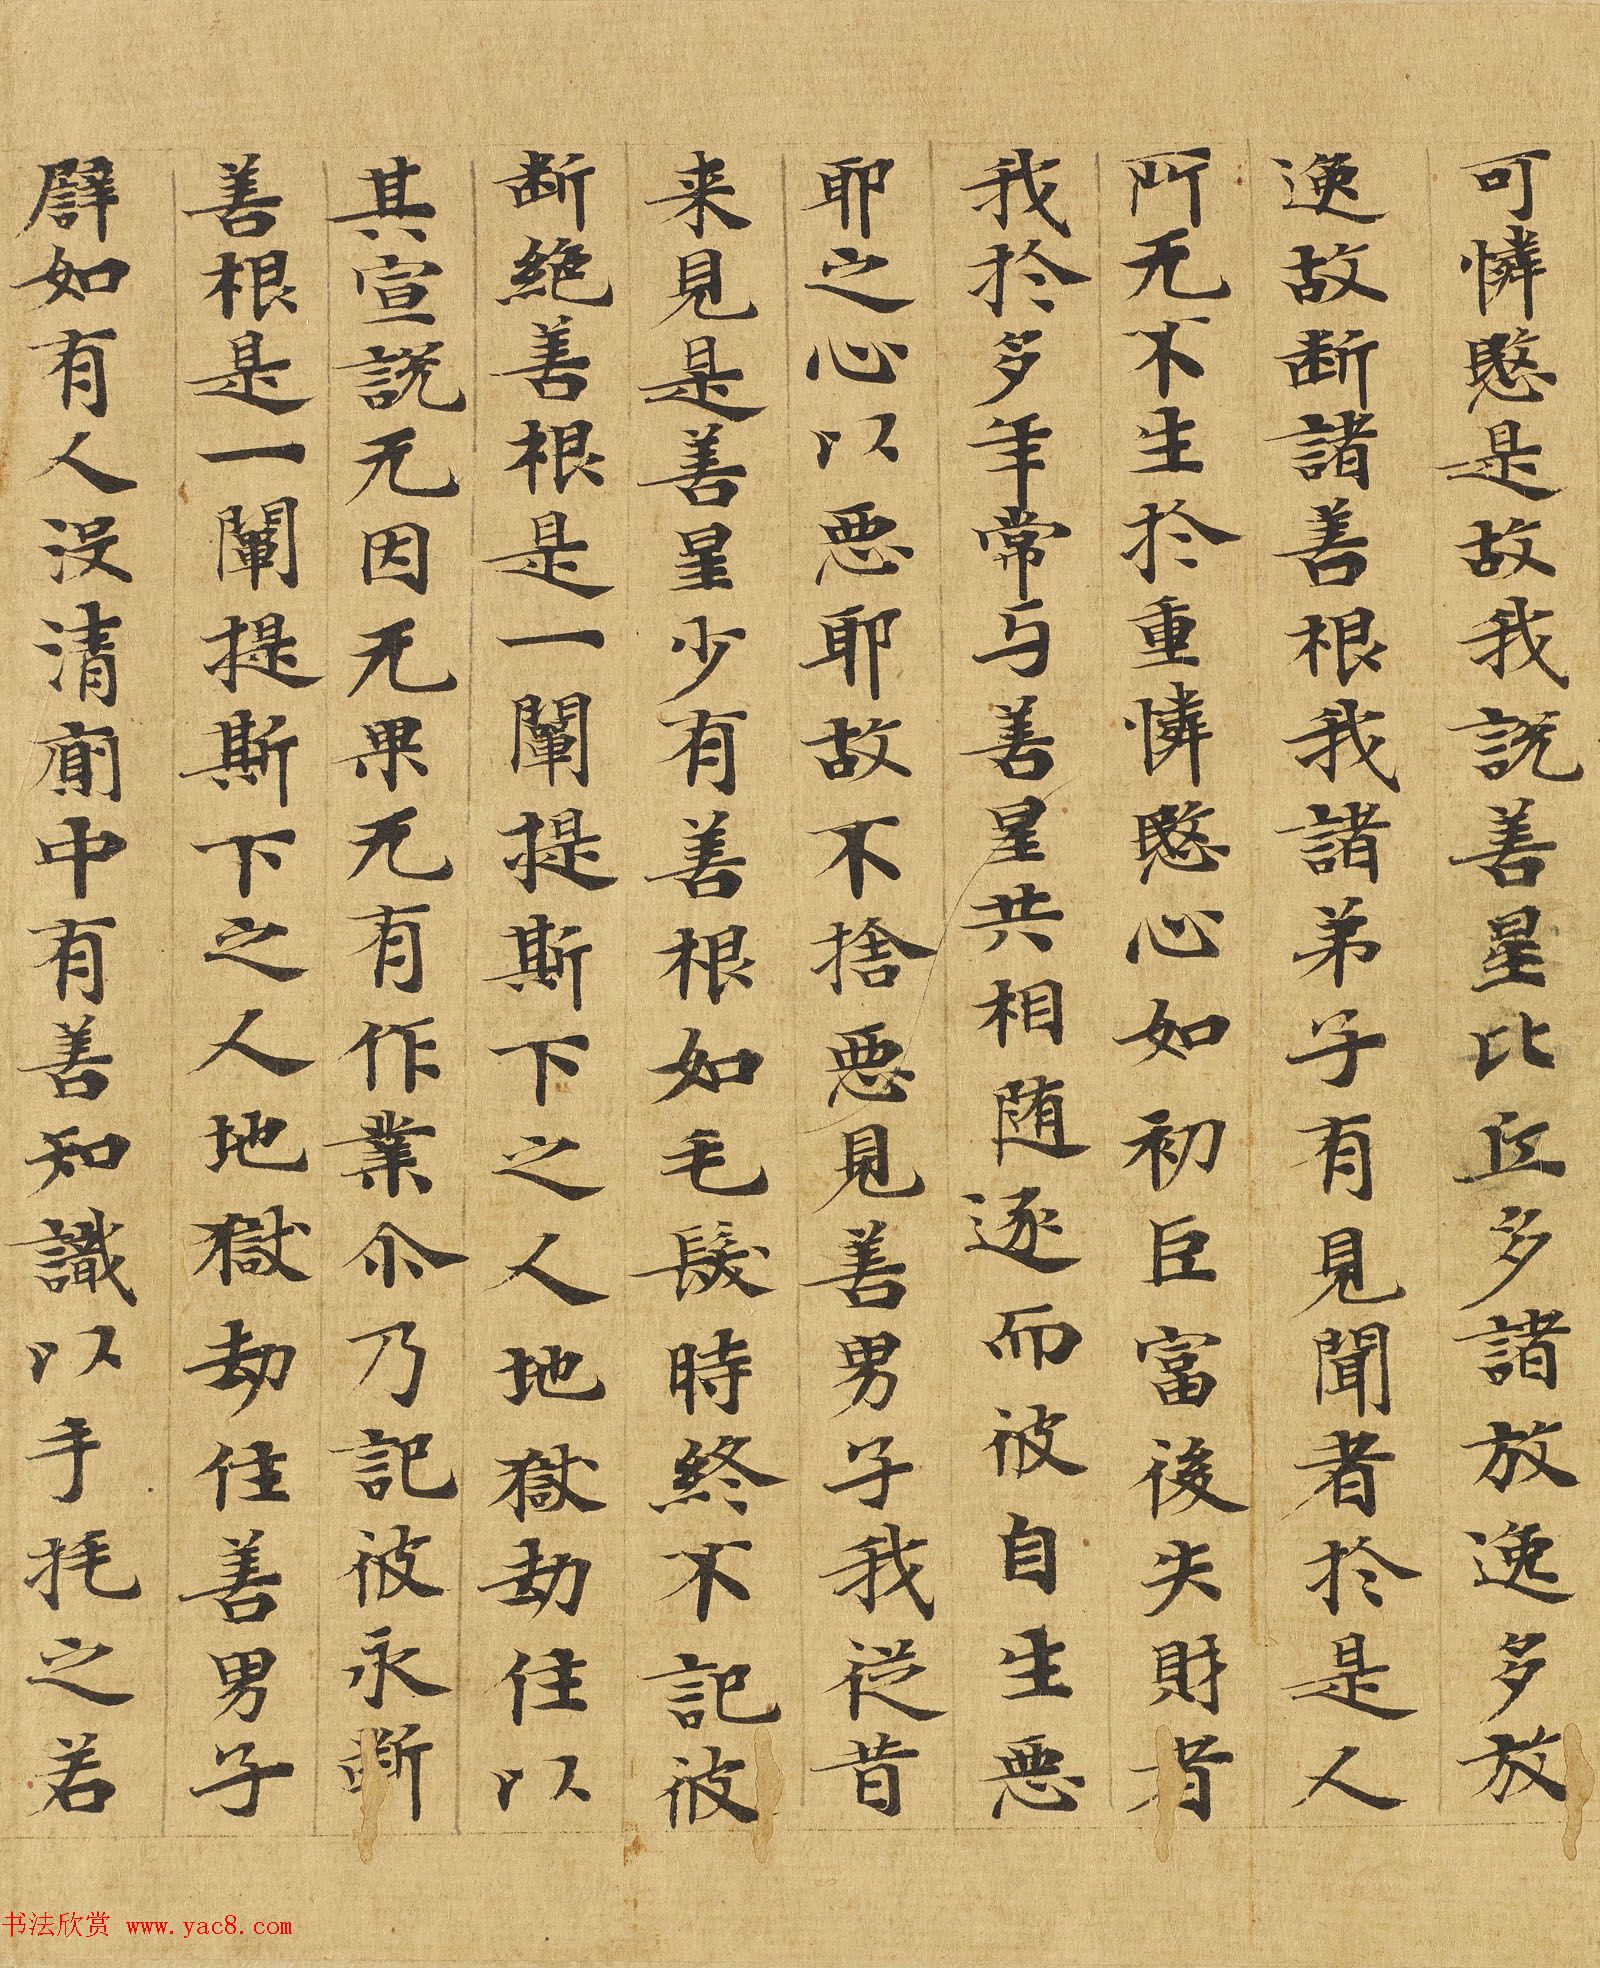 可憐愍是故我説善星比丘多諸放逸多放
逸故断諸善根我諸弟子有見聞者於是人
所无不生於重憐愍心如初巨富後失財者
我於多年常与善星共相随逐而彼自生惡
耶之心以惡耶故不捨惡見善男子我従昔
来見是善星少有善根如毛髮時終不記彼
断絶善根是一闡提斯下之人地獄劫住以
其宣説无因无果无有作業尒乃記彼永断
善根是一闡提斯下之人地獄劫住善男子
譬如有人没清廁中有善知識以手抚之若
书法欣赏 www.yac8.com